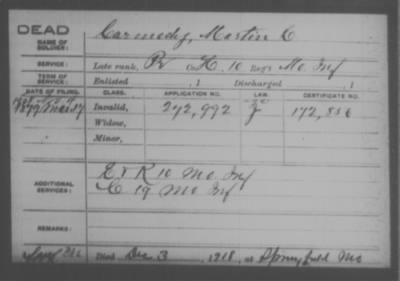 DEAD
NAME OF SOLDIER: Carmody, Martin C
SERVICE: Late rank, Pv Co. H. 10 Reg't Mo. Inf
TERM OF SERVICE: Enlisted , 1 Discharged , 1
DATE OF FILING. CLASS. APPLICATION NO. LAW. CERTIFICATE NO.
1879 Mar 17 Invalid, 272,992 172,836
Widow,
Minor,
ADDITIONAL SERVICES: E & K 10 Mo Inf
C 19 Mo Inf
REMARKS:
Died Dec 3 , 1918, at Springfield Mo